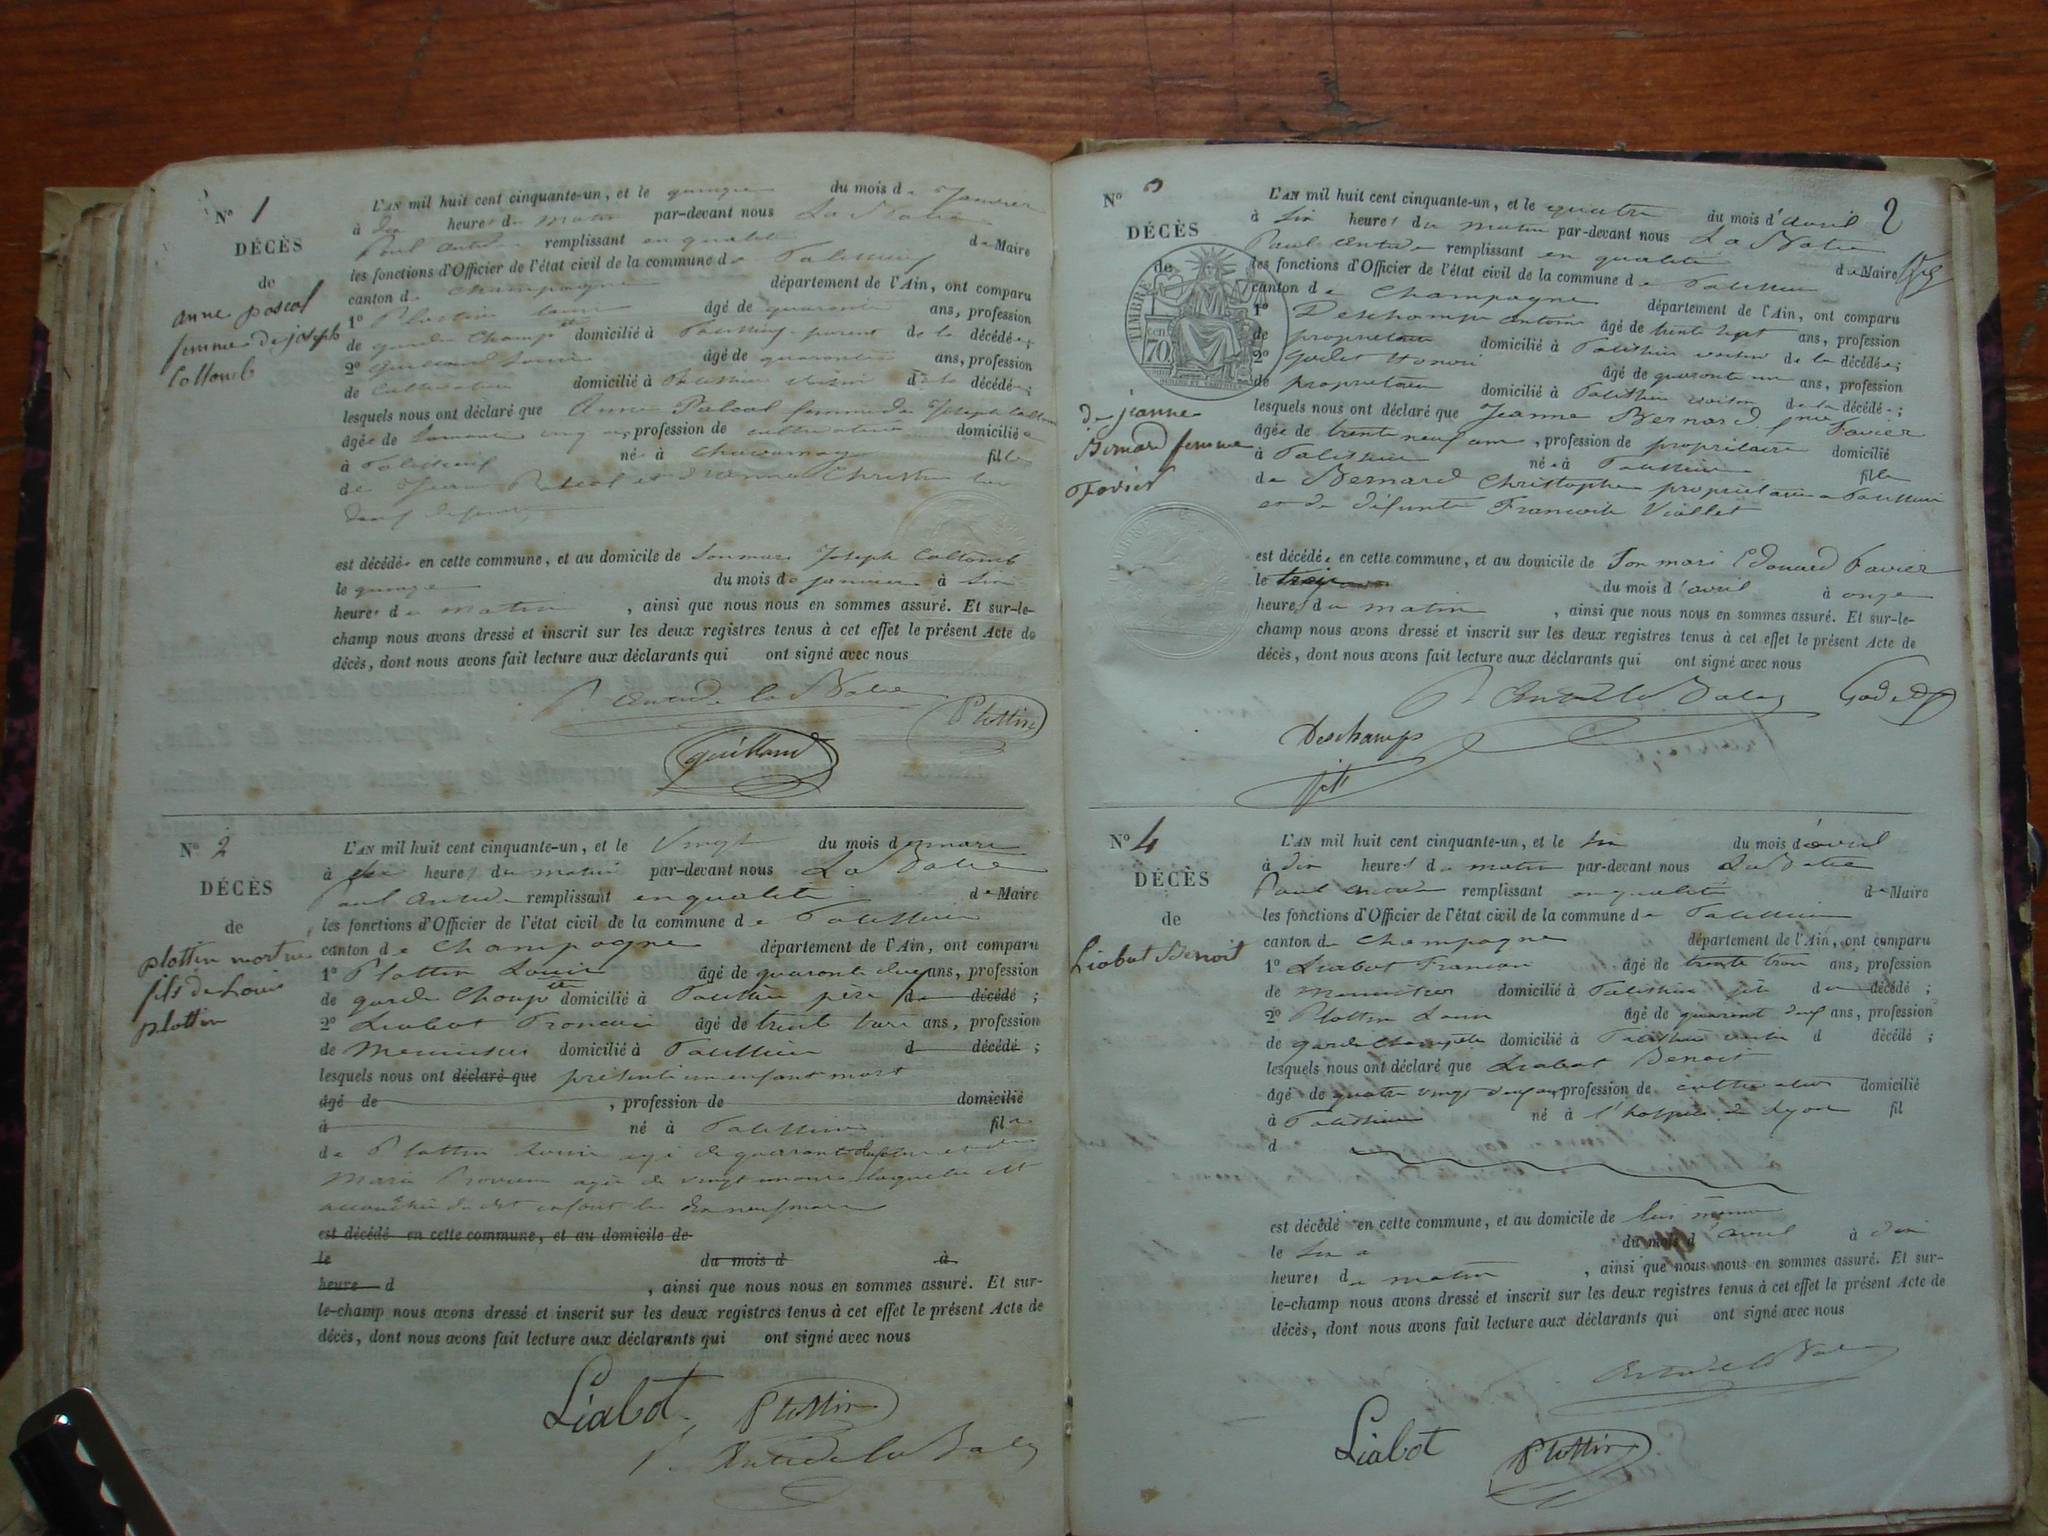 N° 1
DÉCÈS
de
anne pascal
femme de joseph
Collomb
L'AN mil huit cent cinquante-un, et le quinze du mois de Janvier
à dix heures du matin par-devant nous La Batie
Paul Antide remplissant en qualité de Maire
les fonctions d'Officier de l'état civil de la commune de Talissieu
canton de Champagne département de l'Ain, ont comparu
1° Plottin Louis âgé de quarante ans, profession
de garde Champtre domicilié à Talissieu parent de la décédée;
2° Guilland âgé de quarante ans, profession
de Cultivateur domicilié à Talissieu voisin de la décédée;
lesquels nous ont déclaré que Anne Pascal femme de Joseph Collomb
âgée de soixante cinq ans, profession de cultivatrice domiciliée
à Talissieu née à fille
de Jean Pascal et d'
est décédée en cette commune, et au domicile de son mari Joseph Collomb
le quinze du mois de janvier à six
heures du matin, ainsi que nous nous en sommes assuré. Et sur-le-
champ nous avons dressé et inscrit sur les deux registres tenus à cet effet le présent Acte de
décès, dont nous avons fait lecture aux déclarants qui ont signé avec nous
P. Antide la Batie
Plottin
guilland
N° 2
DÉCÈS
de
plottin mort né
fils de Louis
plottin
L'AN mil huit cent cinquante-un, et le Vingt du mois de mars
à dix heures du matin par-devant nous La Batie
Paul Antide remplissant en qualité de Maire
les fonctions d'Officier de l'état civil de la commune de Talissieu
canton de Champagne département de l'Ain, ont comparu
1° Plottin Louis âgé de quarante deux ans, profession
de garde Champtre domicilié à Talissieu père du décédé;
2° Liabot François âgé de trente trois ans, profession
de Menuisier domicilié à Talissieu d décédé;
lesquels nous ont déclaré que présenté un enfant mort
âgé de , profession de domicilié
à né à Talissieu fils
de Plottin Louis agé de quarante deux ans et de
Marie agée de vingt un ans laquelle est
accouchée du dit enfant le dix neuf mars
est décédé en cette commune, et au domicile de
le du mois d à
heure d , ainsi que nous nous en sommes assuré. Et sur-
le-champ nous avons dressé et inscrit sur les deux registres tenus à cet effet le présent Acte de
décès, dont nous avons fait lecture aux déclarants qui ont signé avec nous
Liabot
Plottin
P. Antide la Batie
2
N° 3
DÉCÈS
de
TIMBRE
70
de jeanne
Bernard femme
Favier
L'AN mil huit cent cinquante-un, et le quatre du mois d'avril
à six heures du matin par-devant nous La Batie
Paul Antide remplissant en qualité de Maire
les fonctions d'Officier de l'état civil de la commune de Talissieu
canton de Champagne département de l'Ain, ont comparu
1° Deschamps Antoine âgé de trente sept ans, profession
de propriétaire domicilié à Talissieu voisin de la décédée;
2° Godet Honoré âgé de quarante un ans, profession
de propriétaire domicilié à Talissieu voisin de la décédée;
lesquels nous ont déclaré que Jeanne Bernard fme Favier
âgée de trente neuf ans, profession de propriétaire domicilié
à Talissieu née à Talissieu fille
de Bernard Christophe propriétaire a Talissieu
et de défunte Françoise Viallet
est décédée en cette commune, et au domicile de Son mari Edouard Favier
le trois du mois d'avril à onze
heures du matin, ainsi que nous nous en sommes assuré. Et sur-le-
champ nous avons dressé et inscrit sur les deux registres tenus à cet effet le présent Acte de
décès, dont nous avons fait lecture aux déclarants qui ont signé avec nous
P. Antide la Batie
Godet
Deschamps
N° 4
DÉCÈS
de
Liabot Benoit
L'AN mil huit cent cinquante-un, et le six du mois d'avril
à dix heures du matin par-devant nous La Batie
Paul Antide remplissant en qualité de Maire
les fonctions d'Officier de l'état civil de la commune de Talissieu
canton de Champagne département de l'Ain, ont comparu
1° Liabot François âgé de trente trois ans, profession
de Menuisier domicilié à Talissieu fils du décédé;
2° Plottin Louis âgé de quarante deux ans, profession
de garde Champtre domicilié à Talissieu voisin d décédé;
lesquels nous ont déclaré que Liabot Benoit
âgé de quatre vingt deux ans, profession de cultivateur domicilié
à Talissieu né à l'hospice de Lyon fil
d
est décédé en cette commune, et au domicile de lui même
le six du mois d'avril à dix
heures du matin, ainsi que nous nous en sommes assuré. Et sur-
le-champ nous avons dressé et inscrit sur les deux registres tenus à cet effet le présent Acte de
décès, dont nous avons fait lecture aux déclarants qui ont signé avec nous
Antide la Batie
Liabot
Plottin